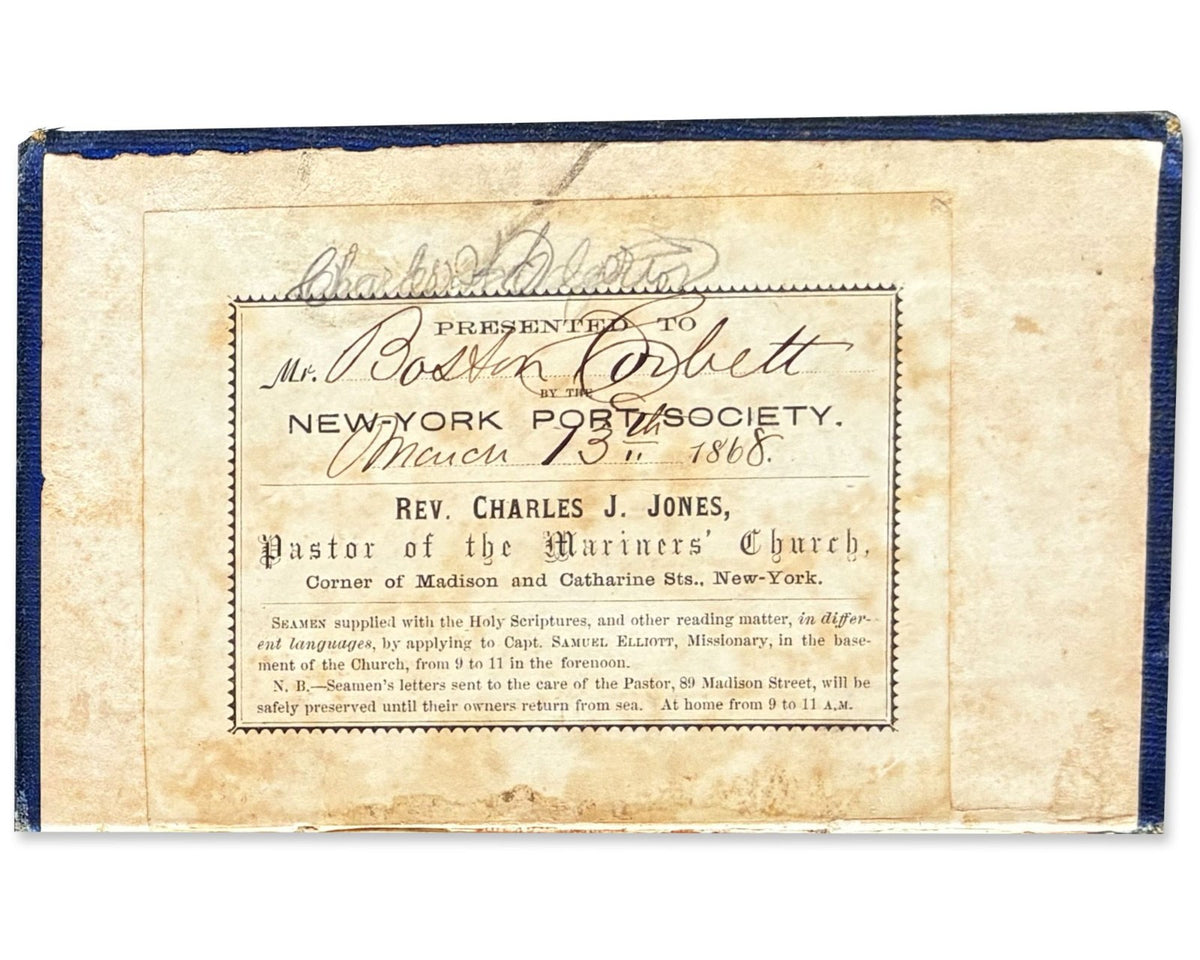 Charles
PRESENTED TO
Mr. Boston Corbett
BY THE
NEW-YORK PORT SOCIETY.
March 13th 1868.
REV. CHARLES J. JONES,
Pastor of the Mariners' Church,
Corner of Madison and Catharine Sts., New-York.
SEAMEN supplied with the Holy Scriptures, and other reading matter, in differ-
ent languages, by applying to Capt. SAMUEL ELLIOTT, Missionary, in the base-
ment of the Church, from 9 to 11 in the forenoon.
N. B.—Seamen's letters sent to the care of the Pastor, 89 Madison Street, will be
safely preserved until their owners return from sea. At home from 9 to 11 A.M.